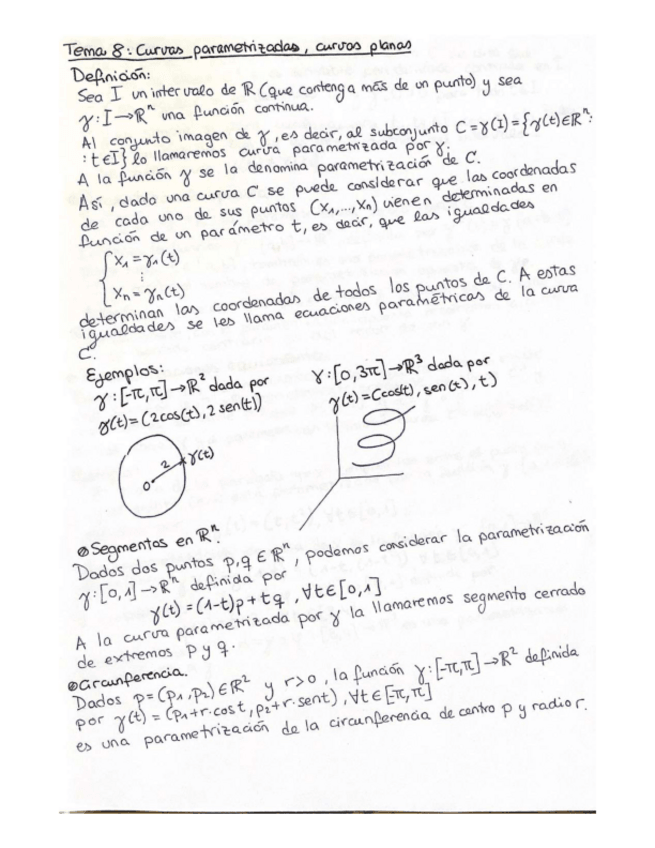 Tema 8: Curvas parametrizadas, curvas planas
Definición:
Sea I un intervalo de ℝ (que contenga más de un punto) y sea
γ: I→ℝⁿ una función continua.
Al conjunto imagen de γ, es decir, al subconjunto C=γ(I)={γ(t)∈ℝⁿ:
:t∈I} lo llamaremos curva parametrizada por γ.
A la función γ se la denomina parametrización de C.
Así, dado una curva C se puede considerar que las coordenadas
de cada uno de sus puntos (x₁,...,xₙ) vienen determinadas en
función de un parámetro t, es decir, que las igualdades
x₁=γ₁(t)
⋮
xₙ=γₙ(t)
determinan las coordenadas de todos los puntos de C. A estas
igualdades se les llama ecuaciones paramétricas de la curva
C.
Ejemplos:
γ:[-π,π]→ℝ² dada por
γ(t)=(2cos(t),2sen(t))
2
γ(t)
0
γ:[0,3π]→ℝ³ dada por
γ(t)=(cos(t),sen(t),t)
Segmentos en ℝⁿ.
Dados dos puntos p,q∈ℝⁿ, podemos considerar la parametrización
γ:[0,1]→ℝⁿ definida por
γ(t)=(1-t)p+tq, ∀t∈[0,1]
A la curva parametrizada por γ la llamaremos segmento cerrado
de extremos p y q.
Circunferencia.
Dados p=(p₁,p₂)∈ℝ² y r>0, la función γ:[-π,π]→ℝ² definida
por γ(t)=(p₁+r·cost,p₂+r·sent), ∀t∈[π,π]
es una parametrización de la circunferencia de centro p y radio r.